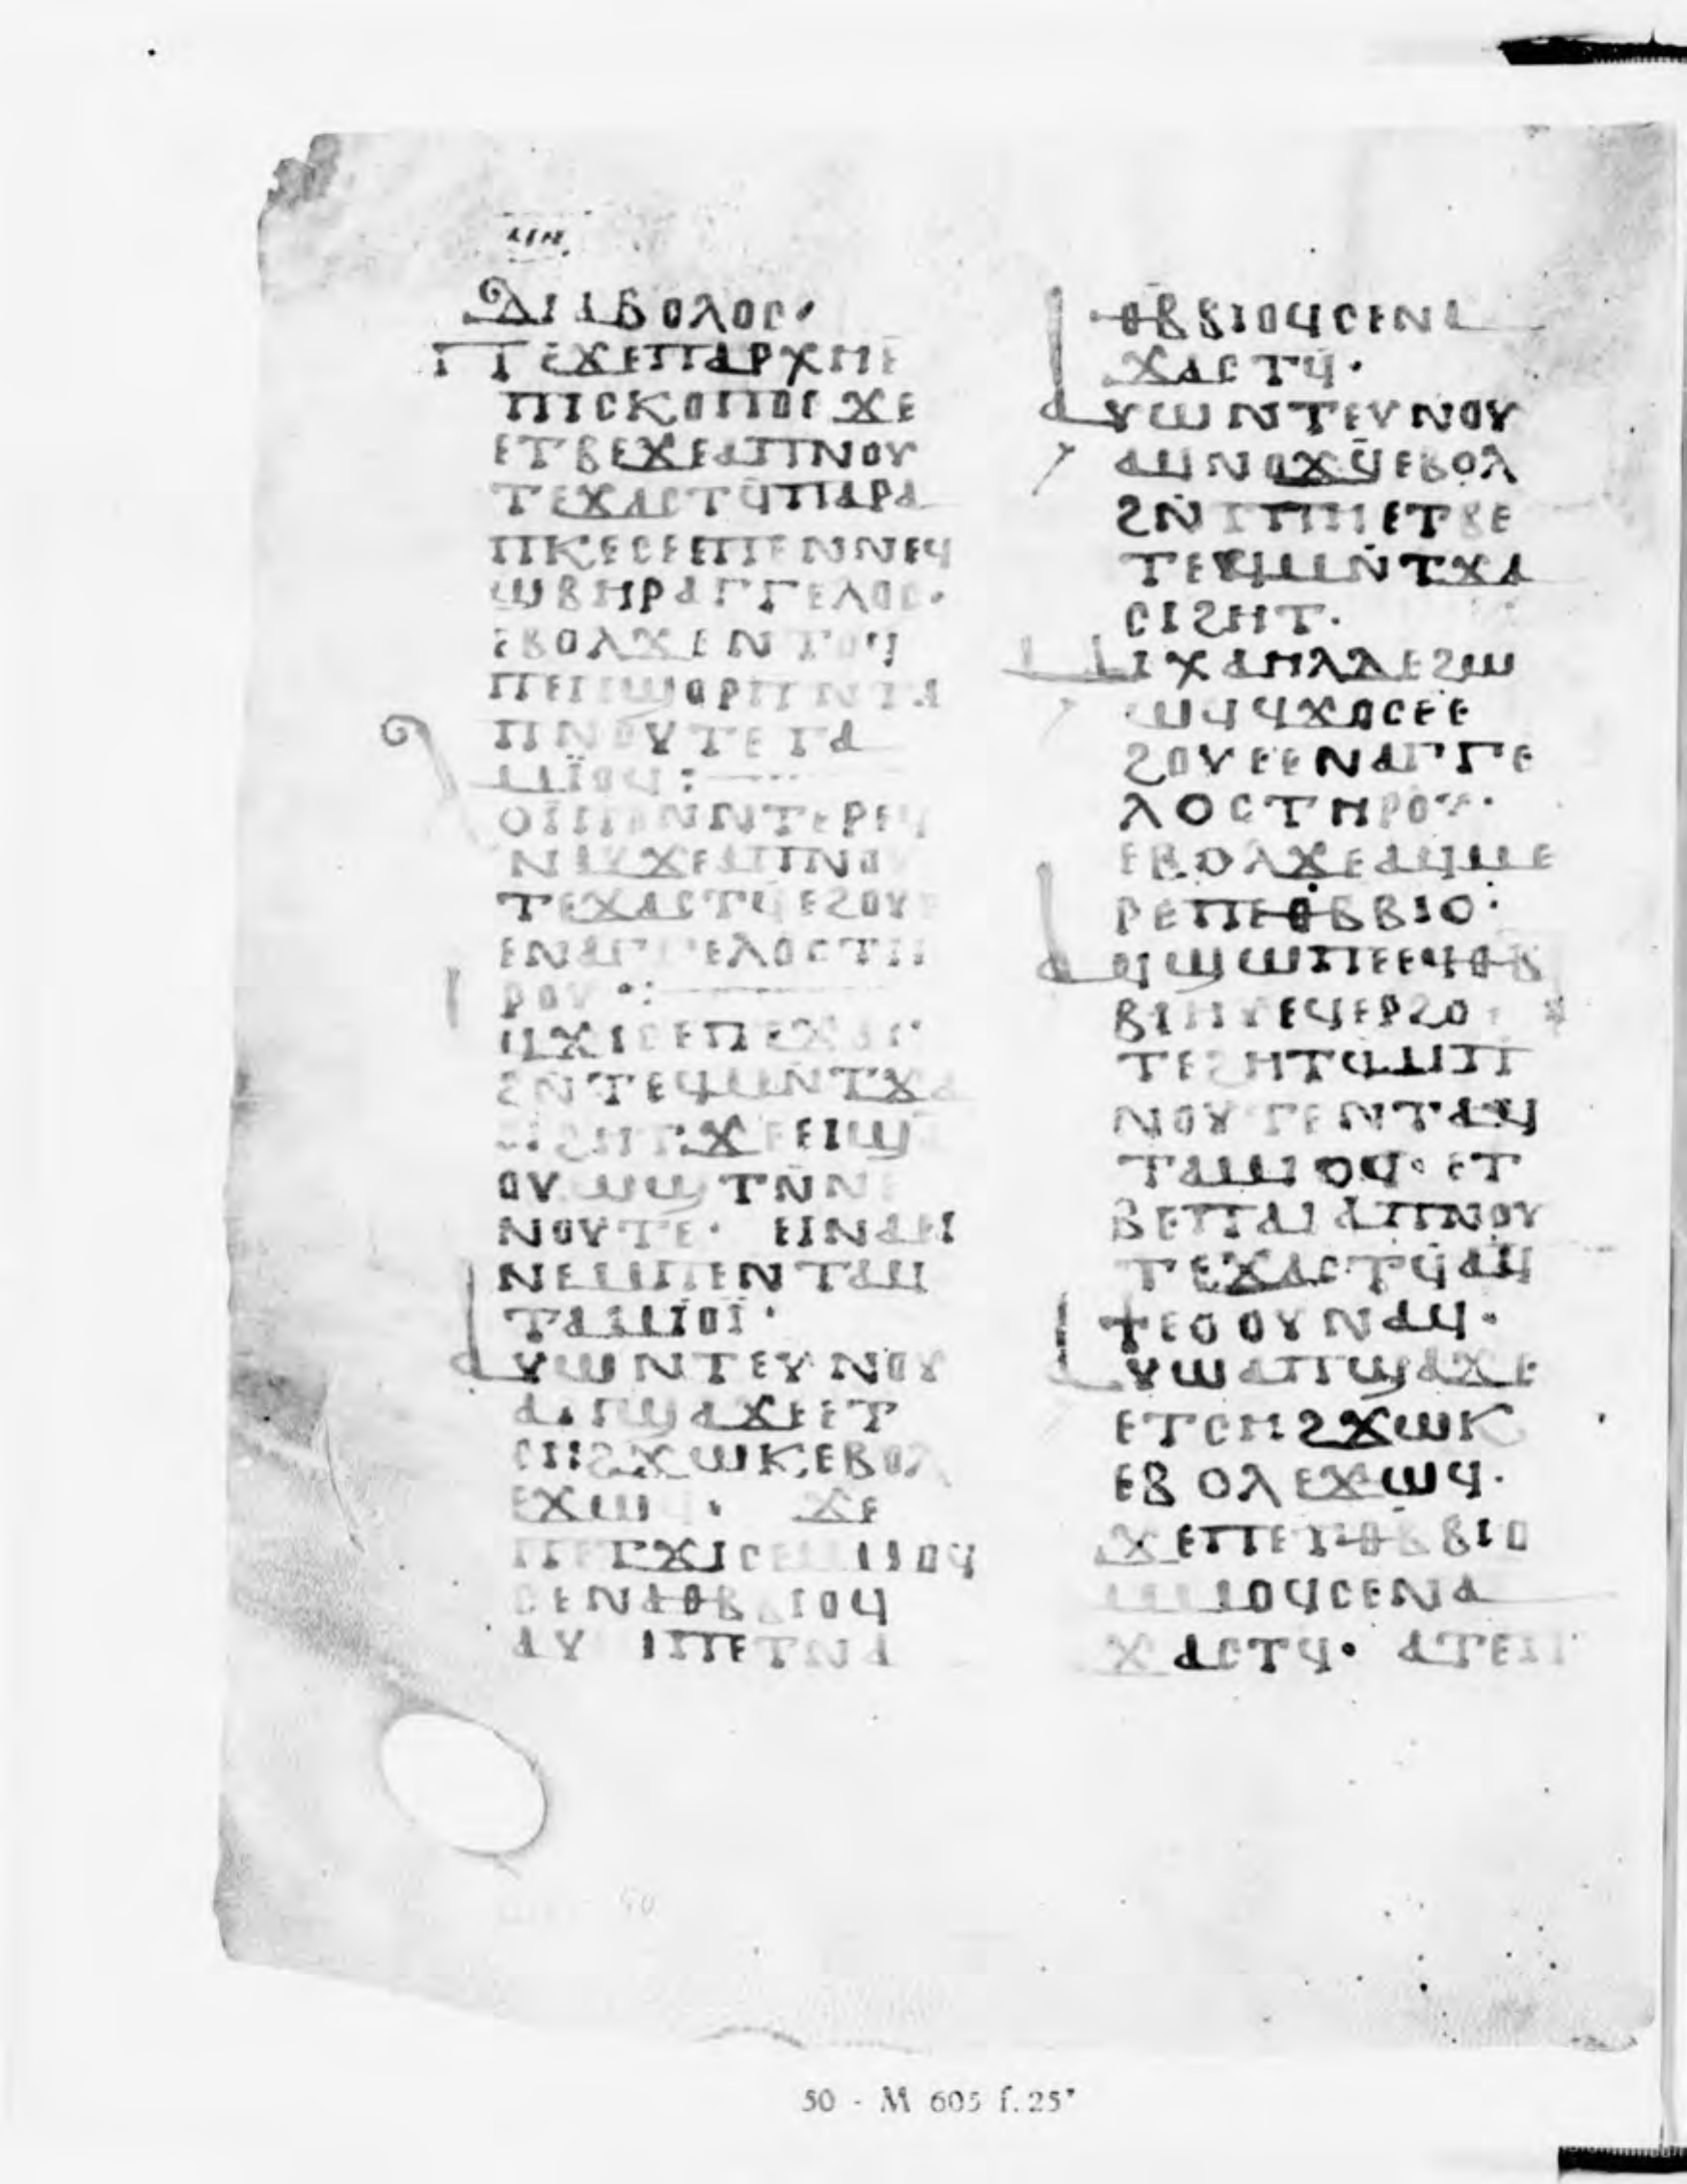 ⲙⲏ
ⲇⲓⲁⲃⲟⲗⲟⲥ·
ⲡⲉϫⲉⲡⲁⲣⲭⲏⲉ
ⲡⲓⲥⲕⲟⲡⲟⲥ ϫⲉ
ⲉⲧⲃⲉϫⲉⲁⲡⲛⲟⲩ
ⲧⲉϫⲁⲥⲧϥⲡⲁⲣⲁ
ⲡⲕⲉⲥⲉⲉⲡⲉⲛⲛⲉϥ
ϣⲃⲏⲣⲁⲅⲅⲉⲗⲟⲥ·
ⲉⲃⲟⲗϫⲉⲛⲧⲟϥ
ⲡⲉⲓϣⲟⲣⲡⲛⲧⲁ
ⲡⲛⲟⲩⲧⲉⲧⲁ
ⲙⲓⲟϥ:
ⲟⲓⲡⲟⲛⲛⲧⲉⲣⲉϥ
ⲛⲁⲩϫⲉⲁⲡⲛⲟⲩ
ⲧⲉϫⲁⲥⲧϥⲉϩⲟⲩⲉ
ⲉⲛⲁⲅⲅⲉⲗⲟⲥⲧⲏ
ⲣⲟⲩ:
ⲁϥϫⲓⲥⲉⲡⲉϫⲁϥ
ϩⲛⲧⲉϥⲙⲛⲧϫⲁ
ⲥⲓϩⲏⲧ·ϫⲉⲉⲓϣⲁ
ⲟⲩⲱϣⲧⲛⲛⲉ
ⲛⲟⲩⲧⲉ· ⲏⲛⲁⲉⲓ
ⲛⲉⲙⲡⲉⲛⲧⲁϥ
ⲧⲁⲙⲓⲟⲓ·
ⲁⲩⲱⲛⲧⲉⲩⲛⲟⲩ
ⲁⲡϣⲁϫⲉⲉⲧ
ⲥⲏϩϫⲱⲕⲉⲃⲟⲗ
ⲉϫⲱϥ· ϫⲉ
ⲡⲉⲧϫⲓⲥⲉⲙⲙⲟϥ
ⲥⲉⲛⲁⲑⲃⲃⲓⲟϥ
ⲁⲩⲱⲡⲉⲧⲛⲁ
ⲑⲃⲃⲓⲟϥⲥⲉⲛⲁ
ϫⲁⲥⲧϥ·
ⲁⲩⲱⲛⲧⲉⲩⲛⲟⲩ
ⲁϥⲛⲟϫϥⲉⲃⲟⲗ
ϩⲛⲧⲡⲉⲉⲧⲃⲉ
ⲧⲉϥⲙⲛⲧϫⲁ
ⲥⲓϩⲏⲧ·
ⲙⲓⲭⲁⲏⲗⲇⲉϩⲱ
ⲱϥϥϫⲟⲥⲉⲉ
ϩⲟⲩⲉⲉⲛⲁⲅⲅⲉ
ⲗⲟⲥⲧⲏⲣⲟⲩ·
ⲉⲃⲟⲗϫⲉⲁϥⲙⲉ
ⲣⲉⲡⲉⲑⲃⲃⲓⲟ·
ⲁϥϣⲱⲡⲉⲉϥⲑⲃ
ⲃⲓⲏⲩⲉϥⲉⲣϩⲟ
ⲧⲉϩⲏⲧϥⲙⲡ
ⲛⲟⲩⲧⲉⲛⲧⲁϥ
ⲧⲁⲙⲓⲟϥ·ⲉⲧ
ⲃⲉⲡⲁⲓⲁⲡⲛⲟⲩ
ⲧⲉϫⲁⲥⲧϥⲁϥ
ϯⲉⲟⲟⲩⲛⲁϥ·
ⲁⲩⲱⲁⲡϣⲁϫⲉ
ⲉⲧⲥⲏϩϫⲱⲕ
ⲉⲃⲟⲗⲉϫⲱϥ·
ϫⲉⲡⲉⲧⲑⲃⲃⲓⲟ
ⲙⲙⲟϥⲥⲉⲛⲁ
ϫⲁⲥⲧϥ· ⲁⲧⲉⲧ
50 - M 605 f.25ᵛ